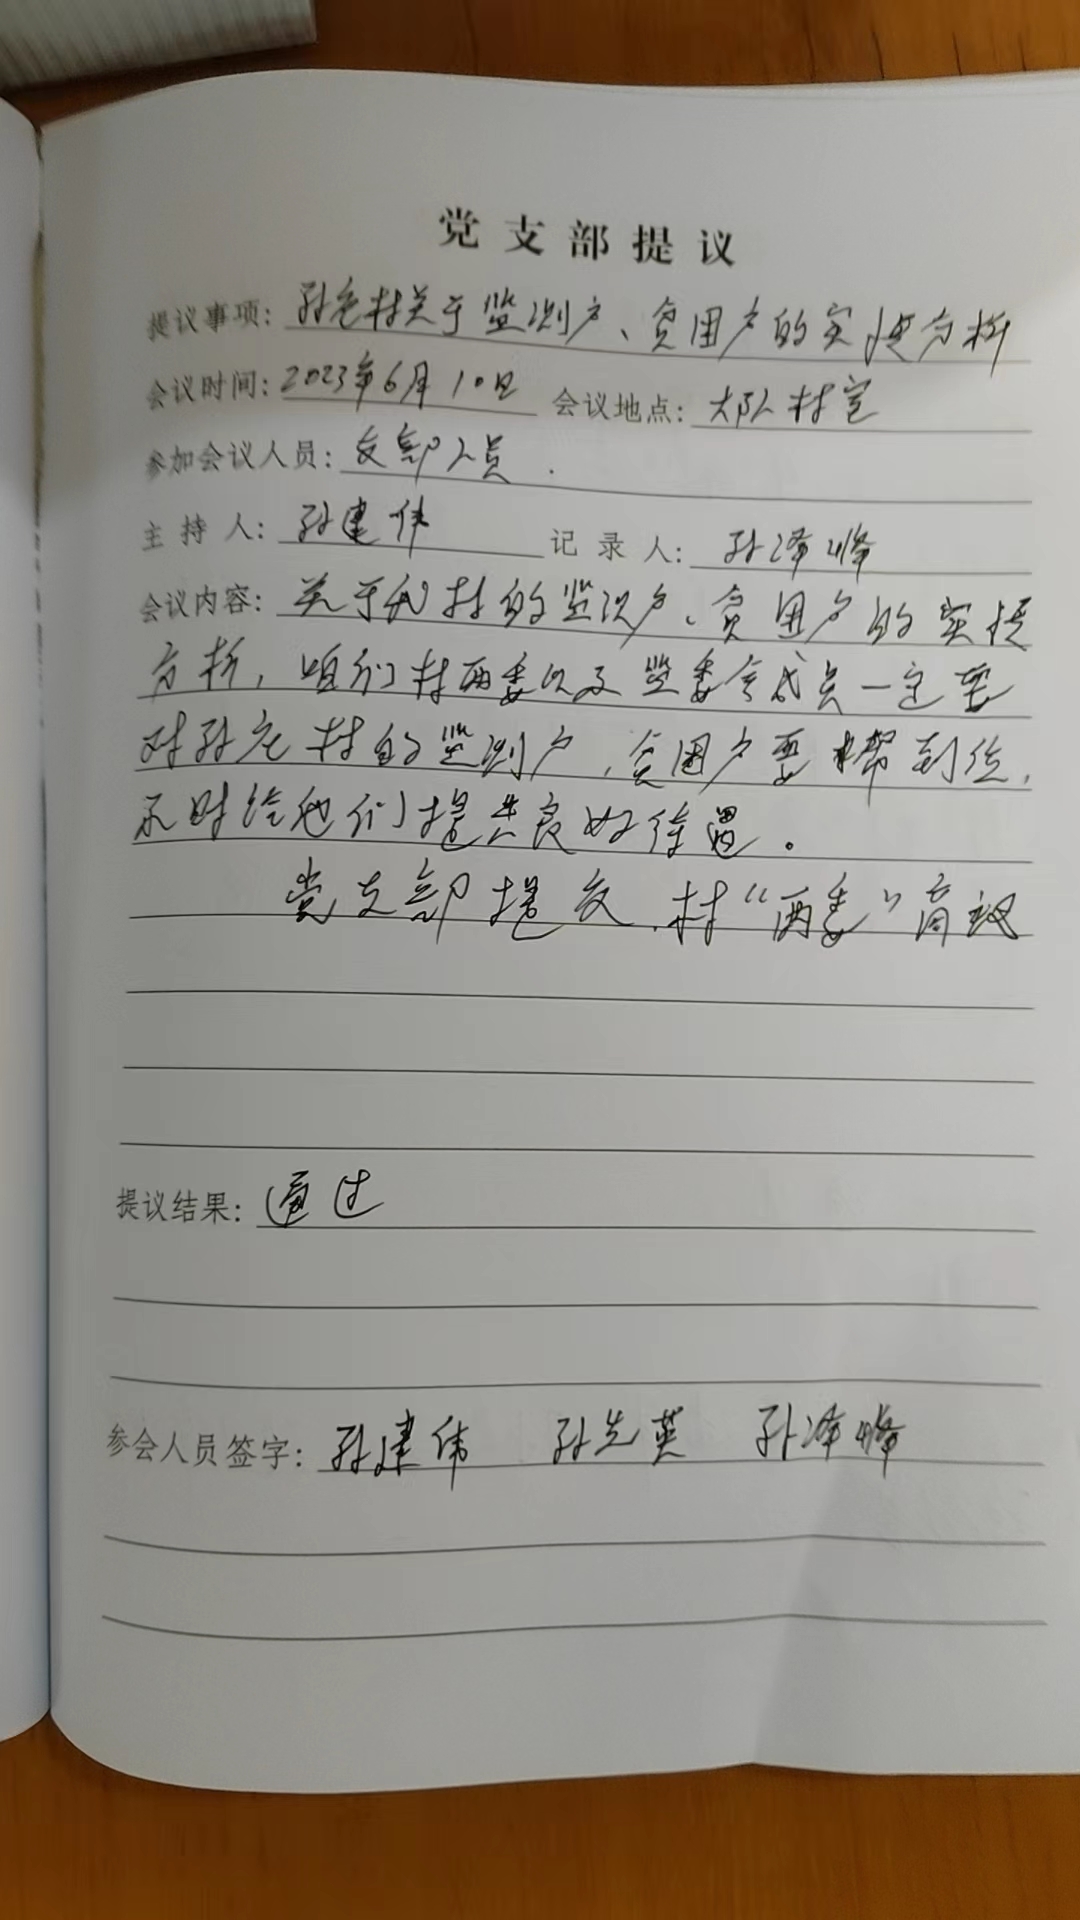 党支部提议
提议事项: 孙庄村关于监测户、贫困户的实情分析
会议时间: 2023年6月10日 会议地点: 大队村室
参加会议人员: 支部人员.
主持人: 孙建伟 记录人: 孙泽峰
会议内容: 关于我村的监测户、贫困户的实情
分析,咱们村两委以及监委会成员一定要
对孙庄村的监测户,贫困户要帮到位,
不时给他们提供良好待遇。
党支部提交.村“两委”商议
提议结果: 通过
参会人员签字: 孙建伟 孙先英 孙泽峰